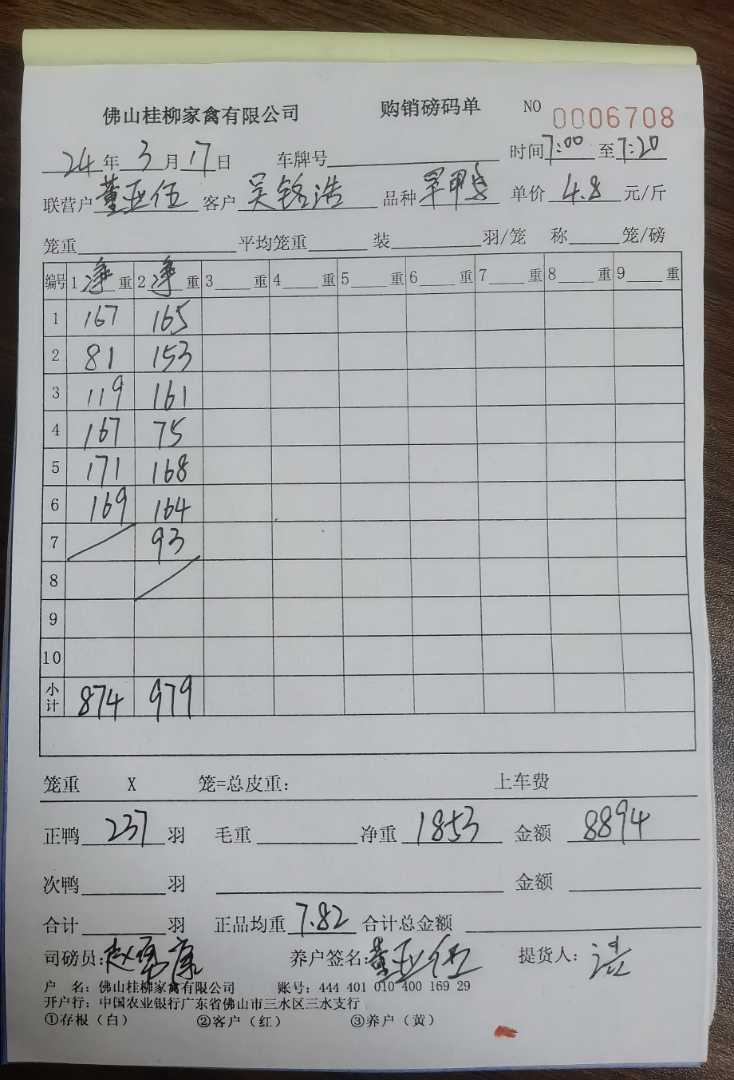 佛山桂柳家禽有限公司 购销磅码单 NO 0006708
24年3月17日 车牌号 时间7:00至7:20
联营户董亚伍 客户吴铭浩 品种 单价4.8元/斤
笼重 平均笼重 装 羽/笼 称 笼/磅
编号 1净重 2净重 3 重 4 重 5 重 6 重 7 重 8 重 9 重
1 167 165
2 81 153
3 119 161
4 167 75
5 171 168
6 169 164
7 93
8
9
10
小计 874 979
笼重 X 笼=总皮重: 上车费
正鸭237羽 毛重 净重1853 金额8894
次鸭 羽 金额
合计 羽 正品均重7.82 合计总金额
司磅员:赵 康 养户签名:董亚伍 提货人:
户 名: 佛山桂柳家禽有限公司 账号: 444 401 010 400 169 29
开户行: 中国农业银行广东省佛山市三水区三水支行
①存根（白） ②客户（红） ③养户（黄）